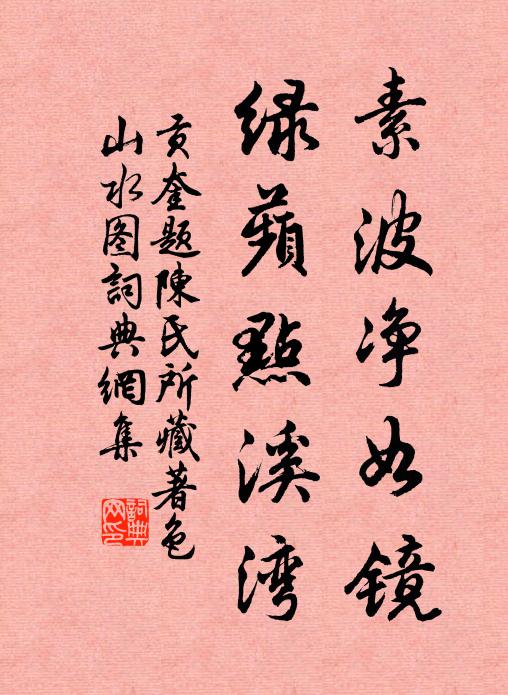 素波净如镜
绿蘋點溪湾
贡奎题陳氏所藏著色
山水图詞典網集
詞典网印